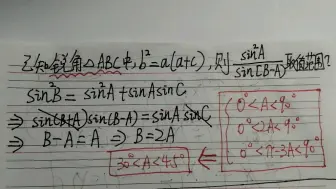 已知锐角△ABC中, b²=a(a+c), 则 sin²A/sin(B-A) 取值范围?
sin²B = sin²A+sinAsinC
⇒ sin(B+A)sin(B-A)=sinAsinC
⇒ B-A=A ⇒ B=2A
30°<A<45° ⇐
0°<A<90°
0°<2A<90°
0°<π-3A<90°